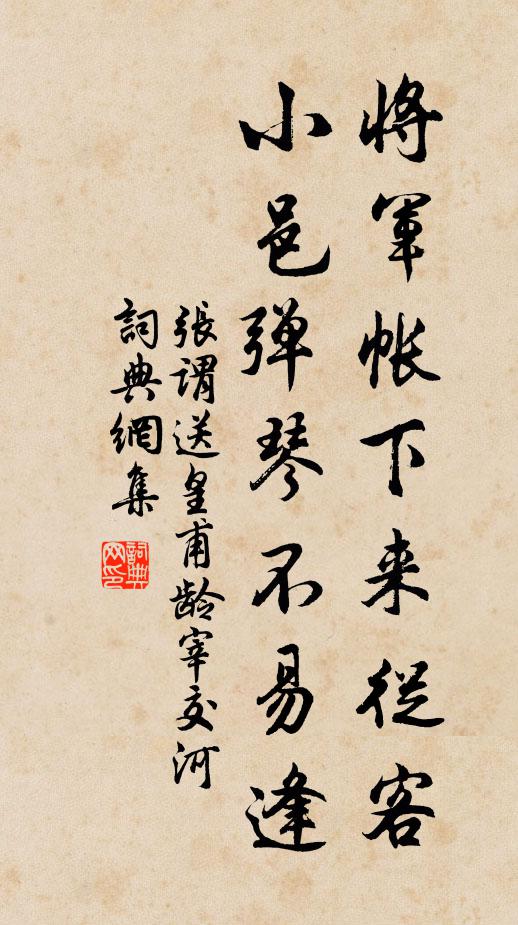 將軍帳下来從客
小邑弹琴不易逢
張謂送皇甫龄宰交河
詞典網集
詞典网印